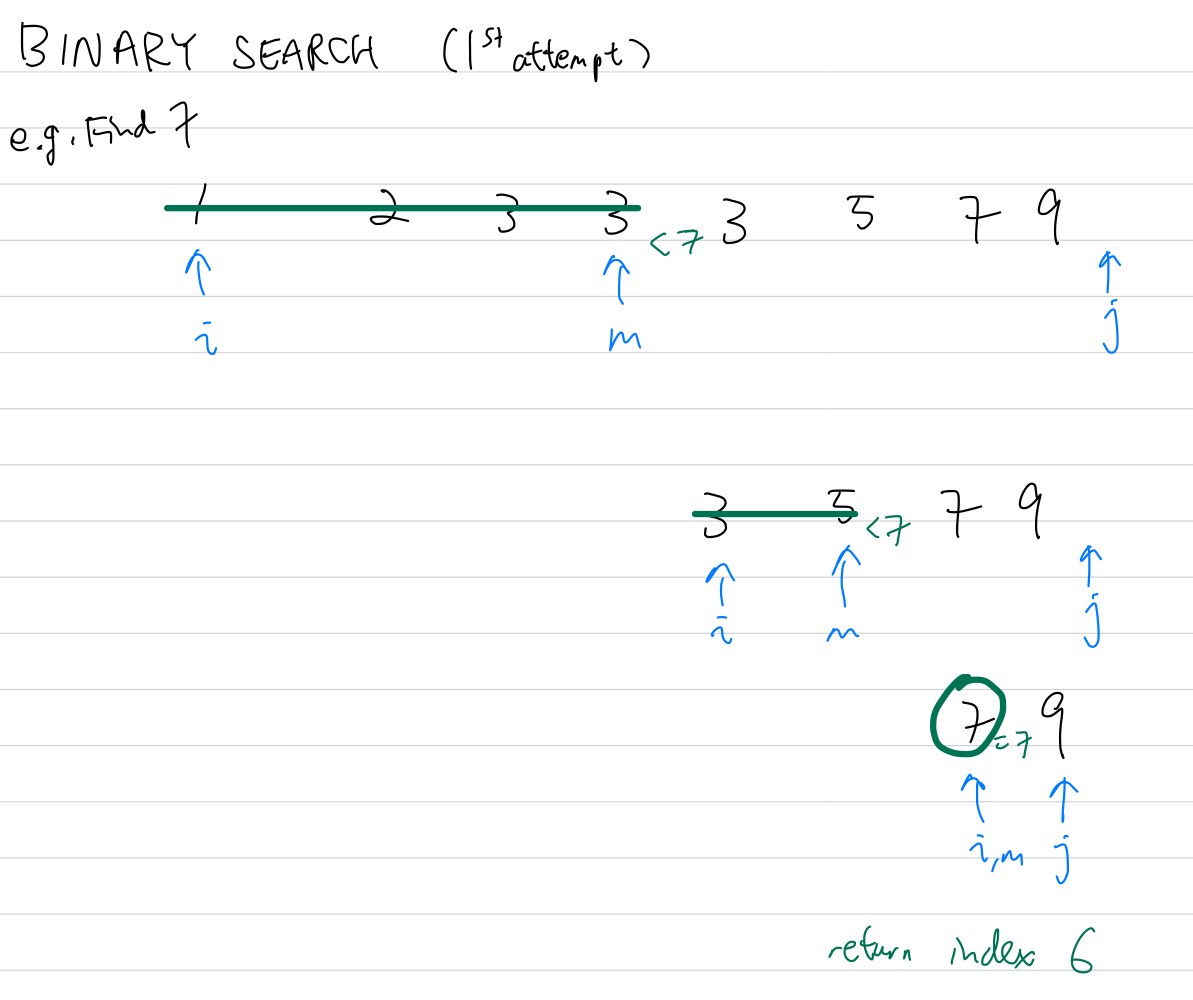 BINARY SEARCH (1st attempt)
e.g. Find 7
1 2 3 3 <7 3 5 7 9
i m j
3 5 <7 7 9
i m j
7 =7 9
i,m j
return index 6